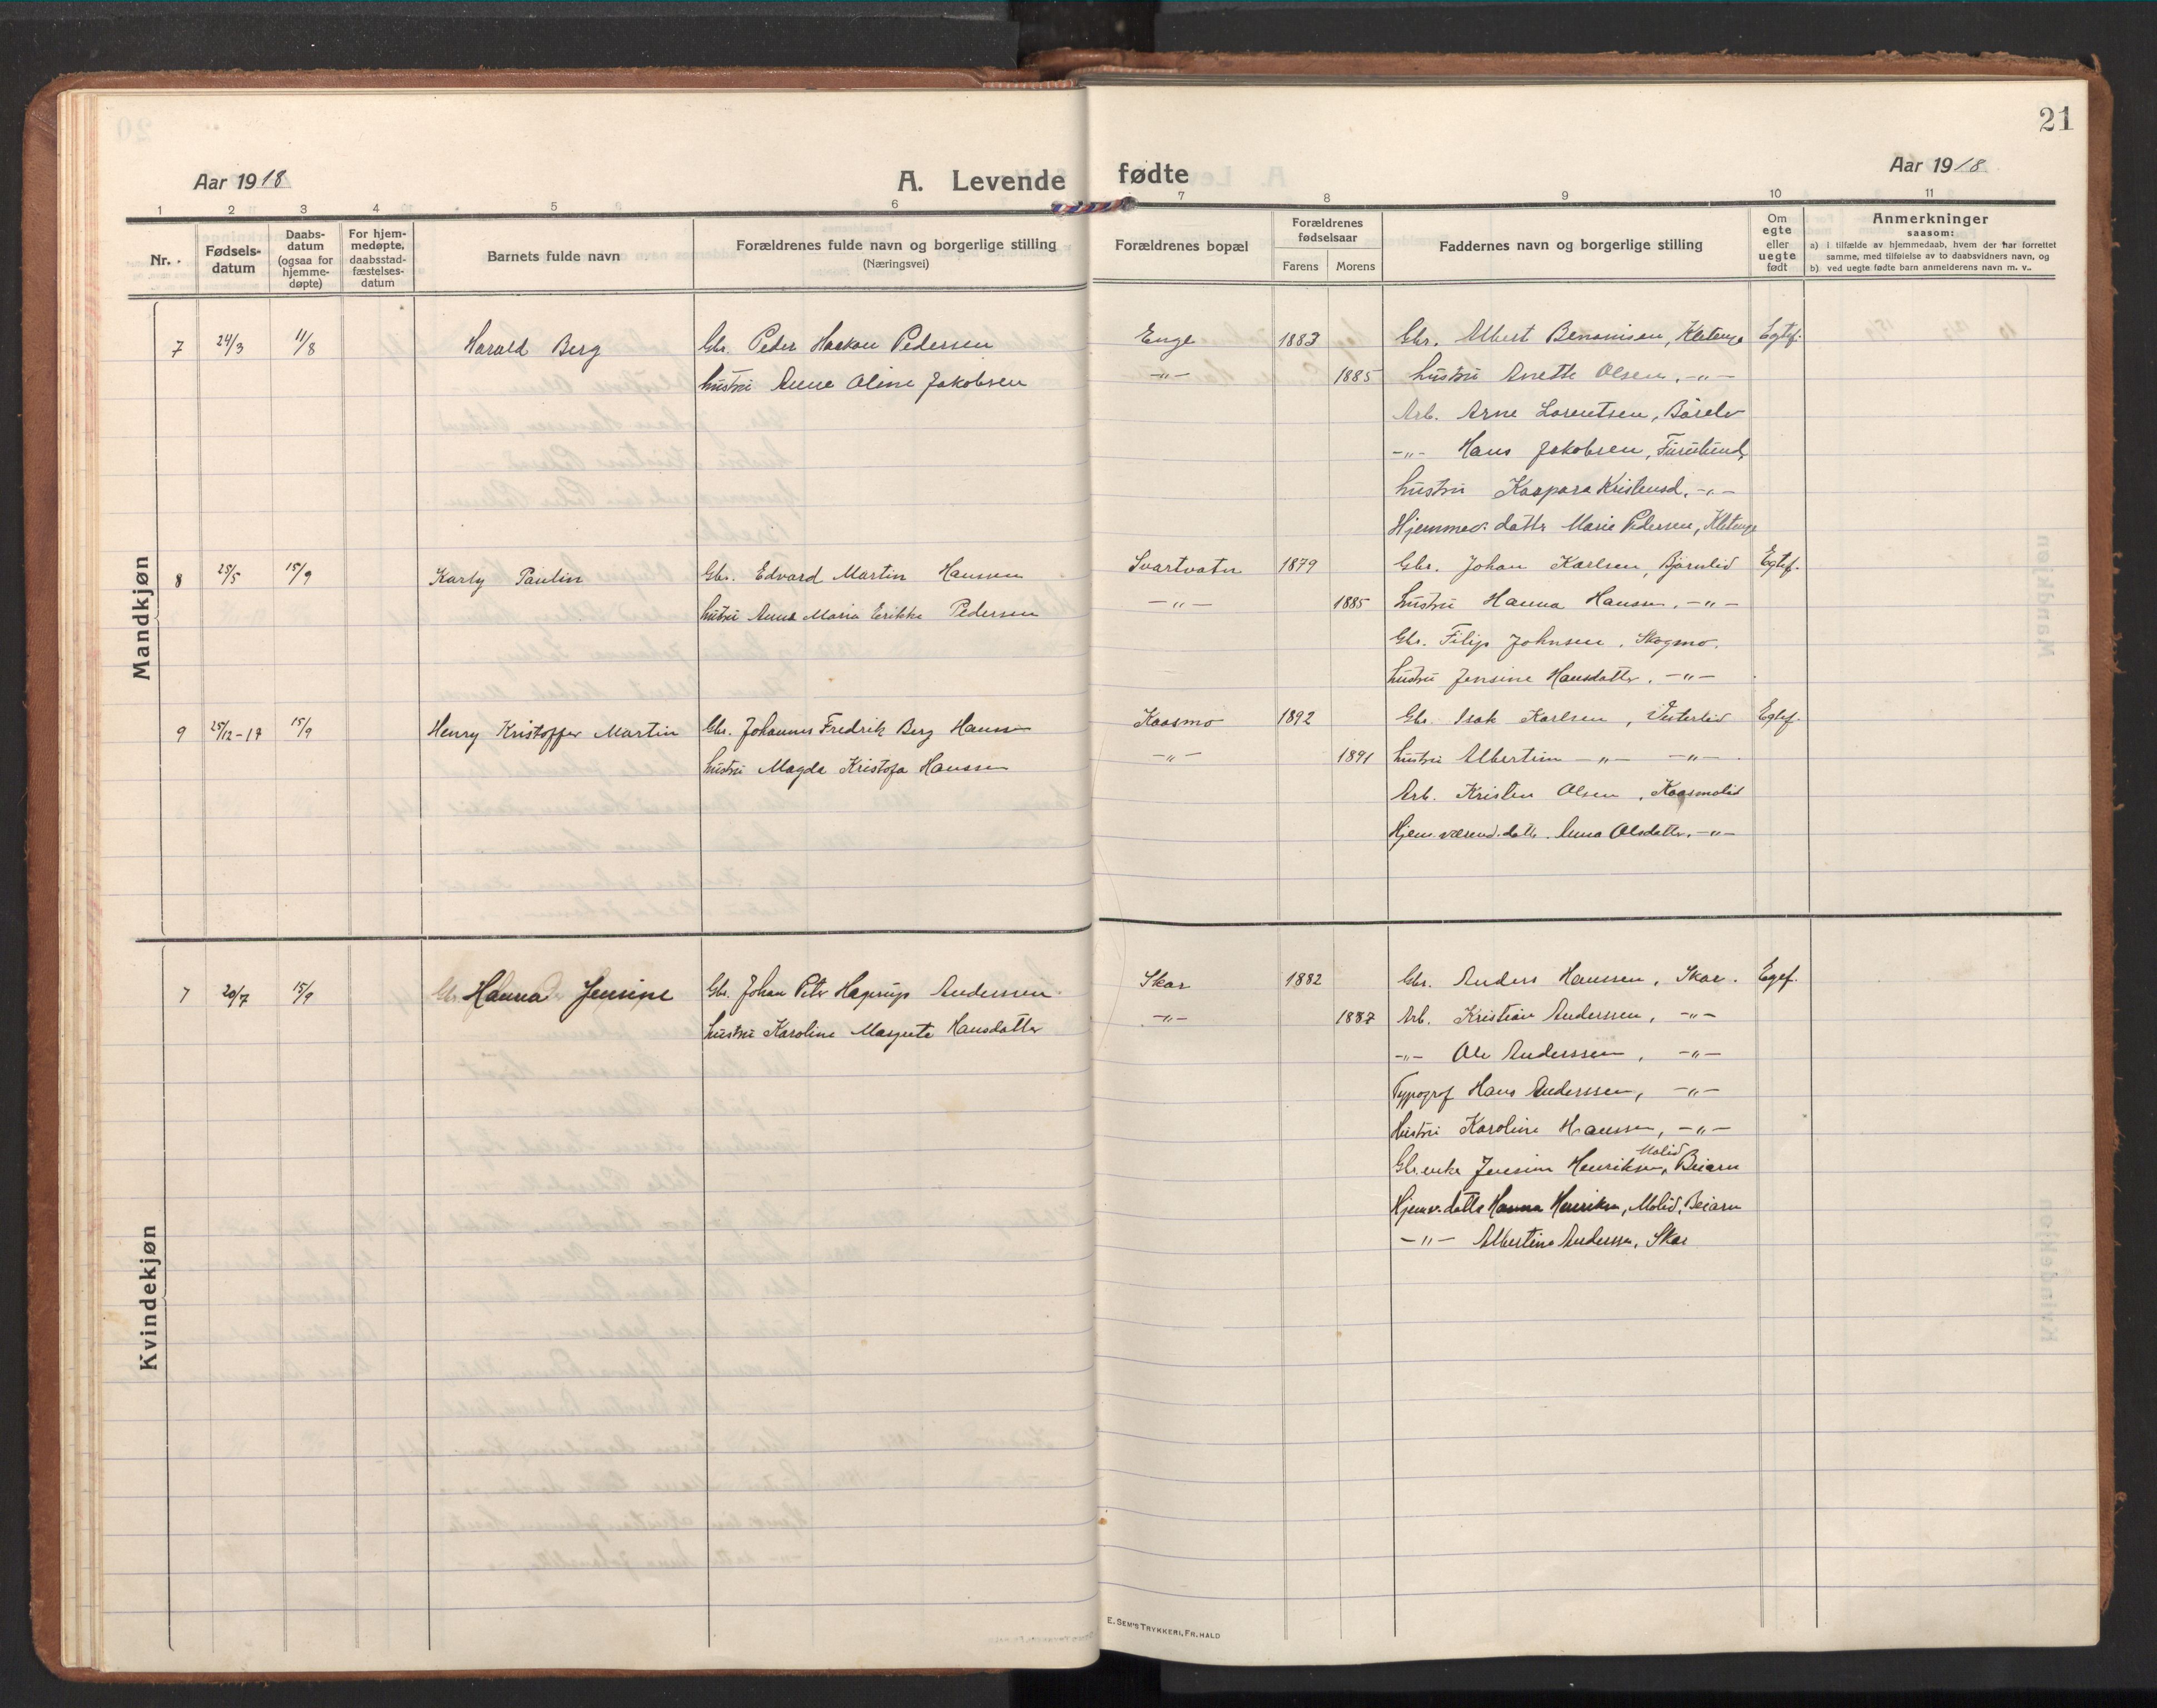 21
Aar 1918
A. Levende fødte
Aar 1918
1 2 3 4 5 6 7 8 9 10 11
Nr.
Fødsels-
datum
Daabs-
datum
(ogsaa for
hjemme-
døpte)
For hjem-
medøpte,
daabsstad-
fæstelses-
datum
Barnets fulde navn
Forældrenes fulde navn og borgerlige stilling
(Næringsvei)
Forældrenes bopæl
Forældrenes
fødselsaar
Farens Morens
Faddernes navn og borgerlige stilling
Om
egte
eller
uegte
født
Anmerkninger
saasom:
a) i tilfælde av hjemmedaab, hvem der har forrettet
samme, med tilføielse av to daabsvidners navn, og
b) ved uegte fødte barn anmelderens navn m. v..
Mandkjøn
7 24/3 11/8 Harald Berg Gbr. Peder Haakon Pedersen Enge 1883 Gbr. Albert Benonisen, Kletenge Egtef.
hustru Anna Oline Jakobsen -"- 1885 hustru Anette Olsen, -"-
Arb. Arne Lorentsen, Báselv
-"- Hans Jakobsen, Furulund,
hustru Kaspara Kristensd. -"-
Hjemmev. datter Marie Pedersen, Kletenge
8 25/5 15/9 Karly Paulin Gbr. Edvard Martin Hansen Svartvatn 1879 Gbr. Johan Karlsen, Bjørnlid Egtef.
hustru Anna Maria Erikke Pedersen -"- 1885 hustru Hanna Hansen, -"-
Gbr. Filip Johnsen, Skogmo.
hustru Jensine Hansdatter, -"-
9 25/12-17 15/9 Henry Kristoffer Martin Gbr. Johannes Fredrik Berg Hansen Kaasmo 1892 Gbr. Isak Karlsen, Vesterlid Egtef.
hustru Magda Kristofa Hanssen -"- 1891 hustru Albertine -"- -"-
Arb. Kristen Olsen, Kaasmolid
Hjem.værend. datt. Anna Olsdatter, -"-
Kvindekjøn
7 20/7 15/9 Hanna Jensine Gbr. Johan Peter Haprup Anderssen Skar 1882 Gbr. Anders Hanssen, Skar. Egtf.
hustru Karoline Margrete Hansdatter -"- 1887 Arb. Kristian Anderssen, -"-
-"- Ole Anderssen, -"-
Typograf Hans Anderssen, -"-
Hustru Karoline Hanssen, -"-
Gbr.enke Jensine Henriksen, Molid, Beiarn
Hjemv. datter Hanna Henriksen, Molid, Beiarn
-"- Albertine Anderssen, Skar
E. SEM'S TRYKKERI, FR.HALD